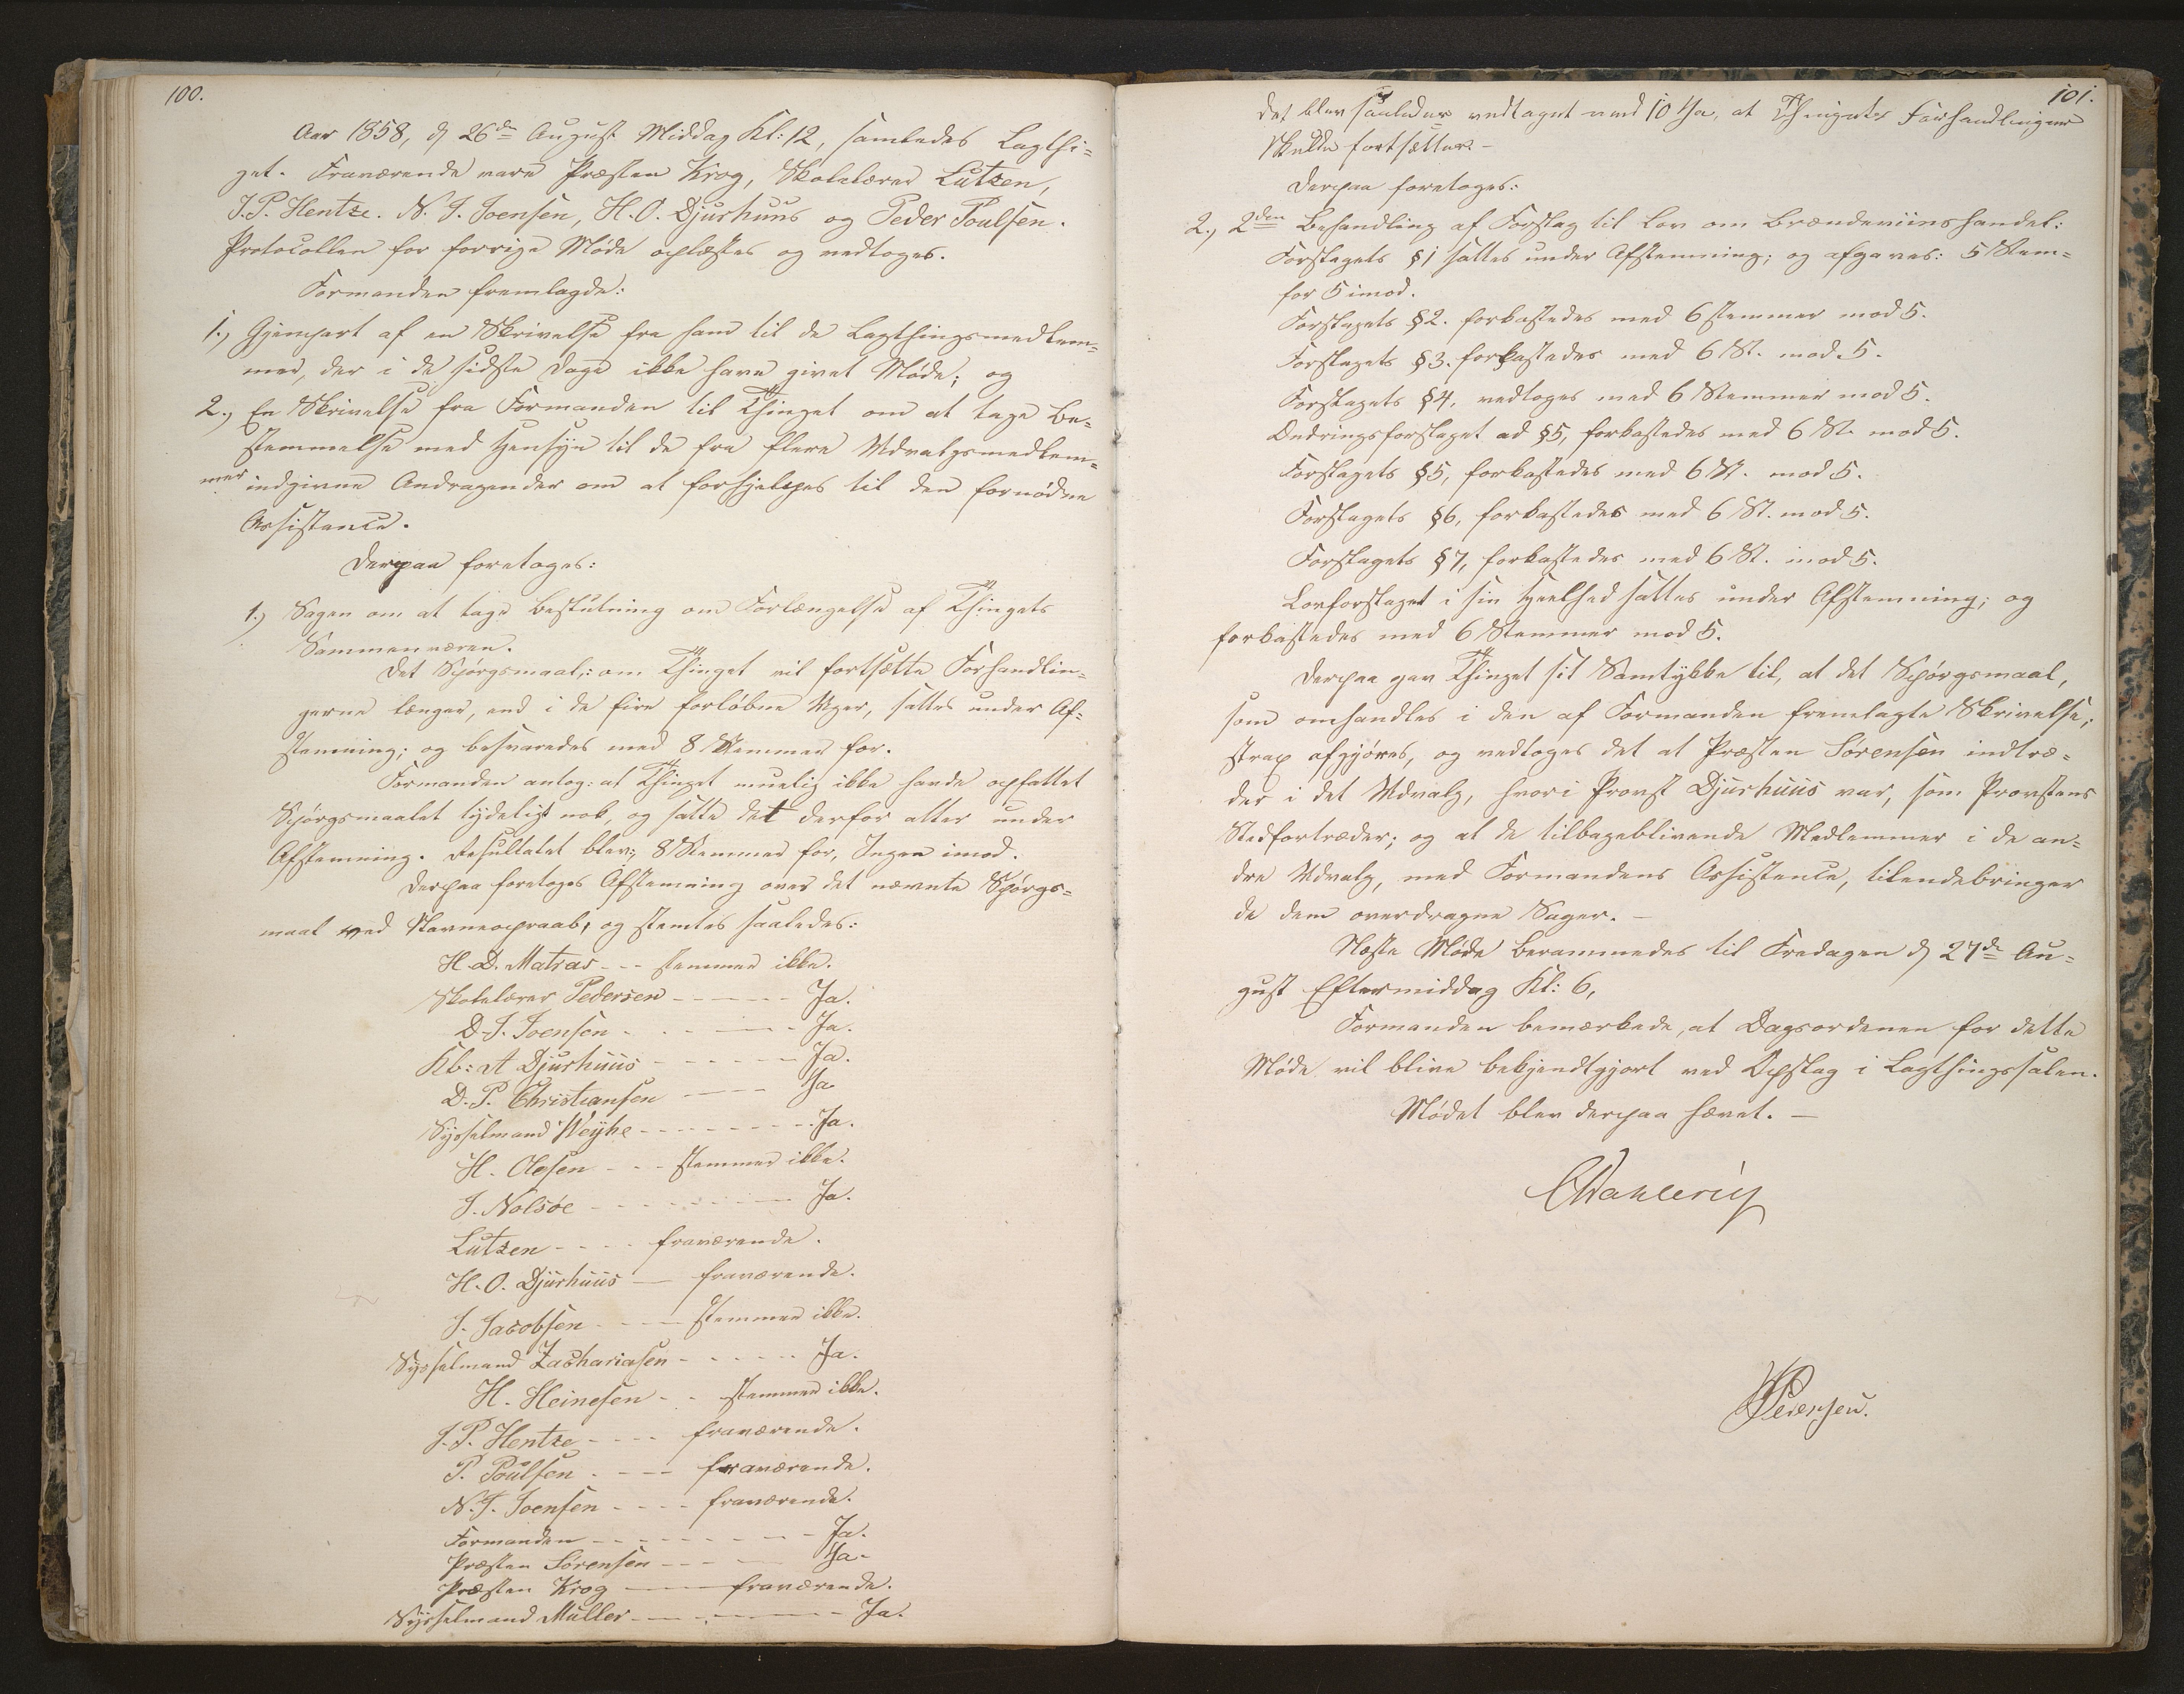 100.
Aar 1858, d 26de August Middag Kl: 12, samledes Lagthi=
get. Fraværende vare Præsten Krog, Skolelærer Lützen,
J. P. Hentze. N. J. Joensen, H. O. Djurhuus og Peder Poulsen.
Protocollen for forrige Møde oplæstes og vedtoges.
Formanden fremlagde:
1.) Gjenpart af en Skrivelse fra ham til de Lagthingsmedlem=
mer, der i de sidste Dage ikke have givet Møde; og
2.) En Skrivelse fra Formanden til Thinget om at tage Be=
stemmelse med Hensyn til de fra flere Udvalgsmedlem=
mer indgivne Andragender om at forhjelpes til den fornødne
Assistance.
Derpaa foretoges:
1.) Sagen om at tage Beslutning om Forlængelse af Thingets
Sammenværen.
Det Spørgsmaal: om Thinget vil fortsætte Forhandlin=
gerne længer, end i de fire forløbne Uger, sattes under Af=
stemning; og besvaredes med 8 Stemmer for.
Formanden antog: at Thinget muelig ikke havde opfattet
Spørgsmaalet tydeligt nok, og satte det derfor atter under
Afstemning. Resultatet blev: 8 Stemmer for, Ingen imod.
Derpaa foretoges Afstemning over det nævnte Spørgs=
maal ved Navneopraab, og stemtes saaledes:
H. D. Matras - - - stemmer ikke.
Skolelærer Pedersen - - - - - Ja.
D. J. Joensen - - - - - Ja.
Kb: A Djurhuus - - - - - - Ja.
D. P. Christiansen - - - - Ja.
Sysselmand Weyhe - - - - - - - - Ja.
H. Olesen - - - stemmer ikke.
J. Nolsøe - - - - - - - - Ja.
Lützen - - - - fraværende.
H. O. Djurhuus - fraværende.
J. Jacobsen - - - - stemmer ikke.
Sysselmand Zachariasen - - - - - Ja.
H. Heinesen - - stemmer ikke.
J. P. Hentze - - - - fraværende.
P. Poulsen - - - - fraværende.
N. J. Joensen - - - - fraværende.
Formanden - - - - - - - - Ja.
Præsten Sørensen - - - - Ja.
Præsten Krog - - - fraværende.
Sysselmand Müller - - - - - - - Ja.
101.
Det blev saaledes vedtaget med 10 Ja, at Thingets Forhandlinger
skulde fortsættes. -
Derpaa foretoges:
2.) 2den Behandling af Forslag til Lov om Brændeviinshandel:
Forslagets § 1 sattes under Afstemning; og afgaves: 5 Stem=
for 5 imod.
Forslagets § 2. forkastedes med 6 stemmer mod 5.
Forslagets § 3. forkastedes med 6 St. mod 5.
Forslagets § 4, vedtoges med 6 Stemmer mod 5.
Ændringsforslaget ad § 5, forkastedes med 6 St. mod 5.
Forslagets § 5, forkastedes med 6 St. mod 5.
Forslagets § 6, forkastedes med 6 St. mod 5.
Forslagets § 7, forkastedes med 6 St. imod 5.
Lovforslaget i sin Heelhed sattes under Afstemning; og
forkastedes med 6 Stemmer mod 5.
Derpaa gav Thinget sit Samtykke til, at det Spørgsmaal,
som omhandles i den af Formanden fremlagte Skrivelse,
strax afgjøres, og vedtoges det at Præsten Sørensen indtræ=
der i det Udvalg, hvori Provst Djurhuus var, som Provstens
Stedfortræder; og at de tilbageblivende Medlemmer i de an=
dre Udvalg, med Formandens Assistence, tilendebringer
de dem overdragne Sager. -
Næste Møde berammedes til Fredagen d 27de Au=
gust Eftermiddag Kl: 6,
Formanden bemærkede, at Dagsordenen for dette
Møde vil blive bekjendtgjort ved Opslag i Lagthingssalen.
Mødet blev derpaa hævet. -
CDahlerup
Pedersen.